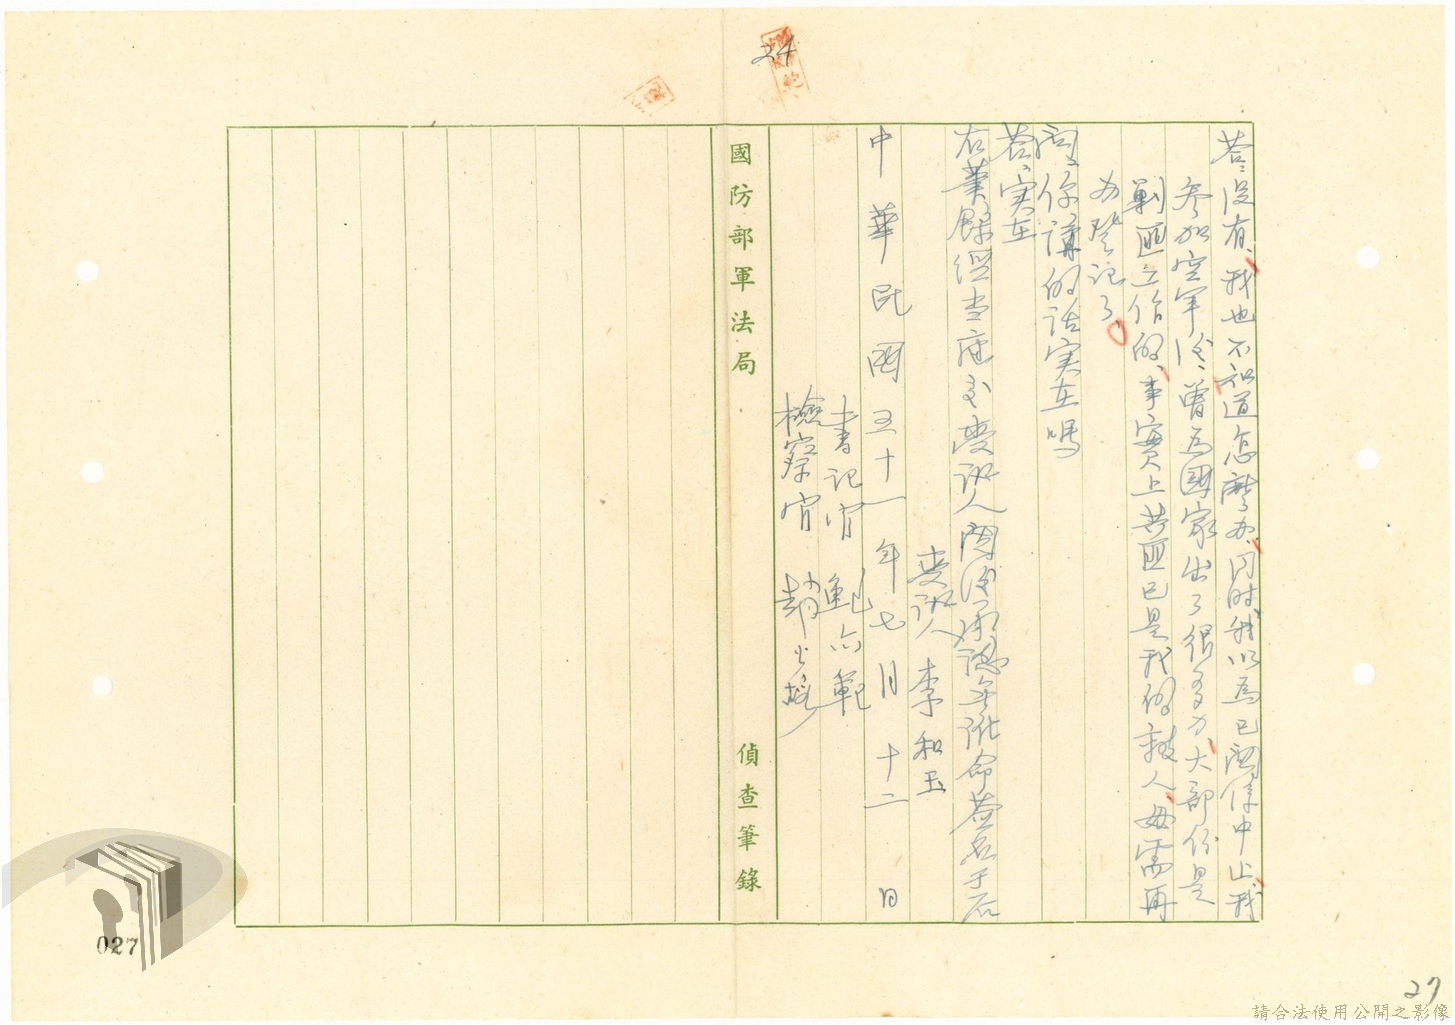 24
答：沒有、我也不知道怎麼办、同时我以為已經停中止、我
參加空軍後、曾為國家出了很多力、大部份是
剿匪工作的、事實上共匪已是我的敵人毋需再
办登記了。
問：你講的話実在嗎
答：実在
右筆錄經当庭交受訊人閱後承認無訛命簽名于后
受訊人 李和玉
中華民國五十一年七月十二日
書記官 鮑亦範
檢察官 趙
國防部軍法局 偵查筆錄
027
27
請合法使用公開之影像